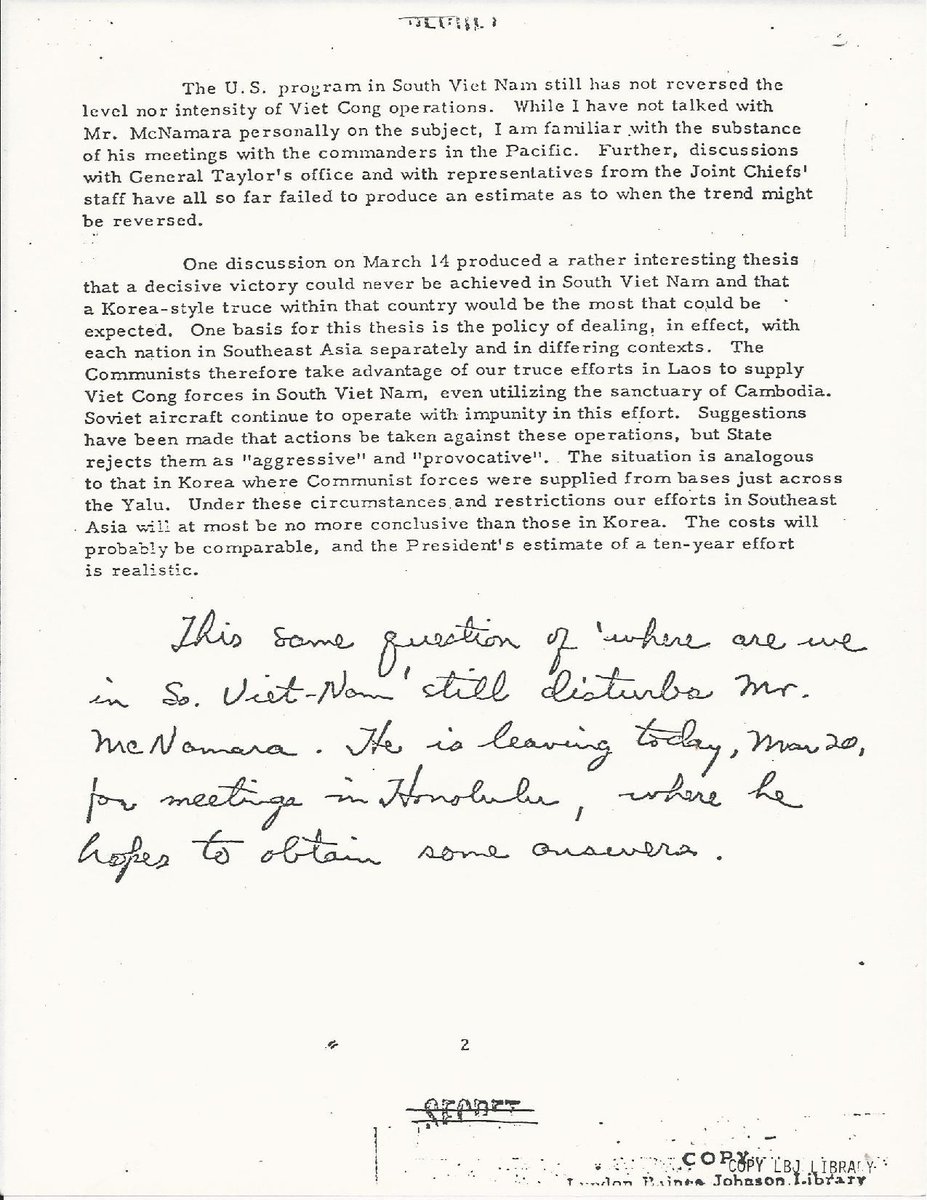 The U.S. program in South Viet Nam still has not reversed the
level nor intensity of Viet Cong operations. While I have not talked with
Mr. McNamara personally on the subject, I am familiar with the substance
of his meetings with the commanders in the Pacific. Further, discussions
with General Taylor's office and with representatives from the Joint Chiefs'
staff have all so far failed to produce an estimate as to when the trend might
be reversed.
One discussion on March 14 produced a rather interesting thesis
that a decisive victory could never be achieved in South Viet Nam and that
a Korea-style truce within that country would be the most that could be
expected. One basis for this thesis is the policy of dealing, in effect, with
each nation in Southeast Asia separately and in differing contexts. The
Communists therefore take advantage of our truce efforts in Laos to supply
Viet Cong forces in South Viet Nam, even utilizing the sanctuary of Cambodia.
Soviet aircraft continue to operate with impunity in this effort. Suggestions
have been made that actions be taken against these operations, but State
rejects them as "aggressive" and "provocative". The situation is analogous
to that in Korea where Communist forces were supplied from bases just across
the Yalu. Under these circumstances and restrictions our efforts in Southeast
Asia will at most be no more conclusive than those in Korea. The costs will
probably be comparable, and the President's estimate of a ten-year effort
is realistic.
This same question of 'where are we
in So. Viet-Nam' still disturbs Mr.
McNamara. He is leaving today, Mar 20,
for meetings in Honolulu, where he
hopes to obtain some answers.
2
SECRET
COPY
COPY LBJ LIBRARY
Lyndon Baines Johnson Library